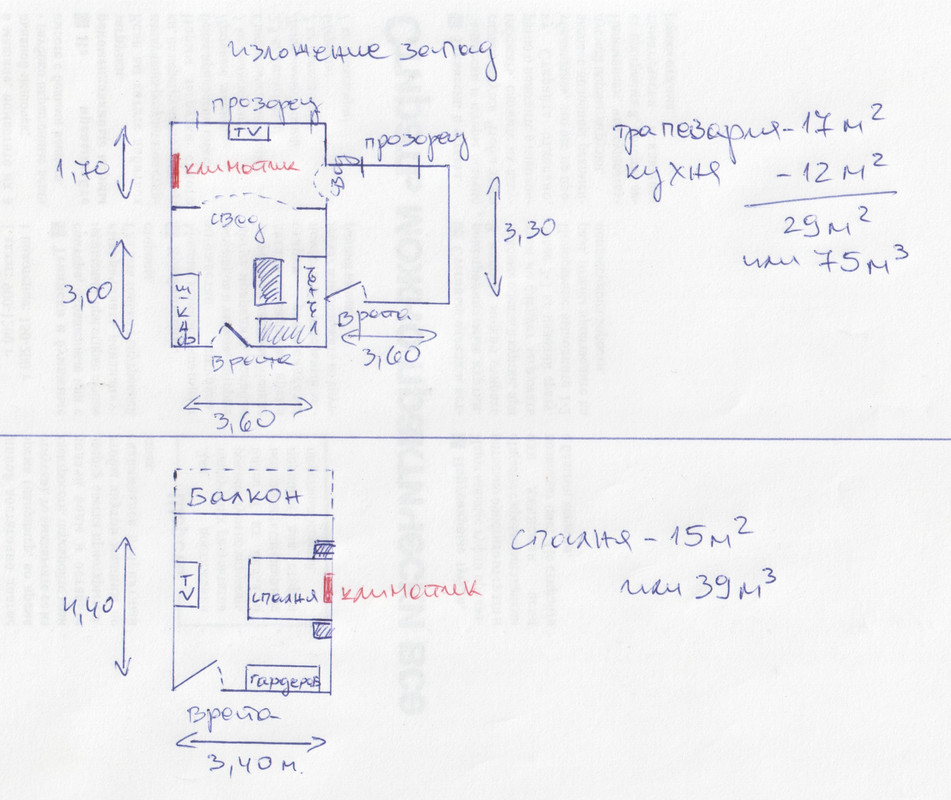 изложение запад
прозорец
TV
прозорец
1,70
климатик
свод
свод
3,00
ШКАФ
ъгъл
3,30
Врата
Врата
3,60
3,60
трапезария - 17 м²
кухня - 12 м²
29 м²
или 75 м³
БАЛКОН
TV
спалня
климатик
4,40
гардероб
Врата
3,40 м.
спалня - 15 м²
или 39 м³